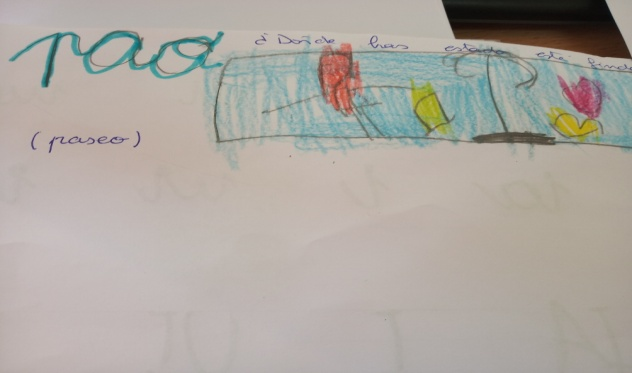 pao
¿Dónde has estado este finde
(paseo)